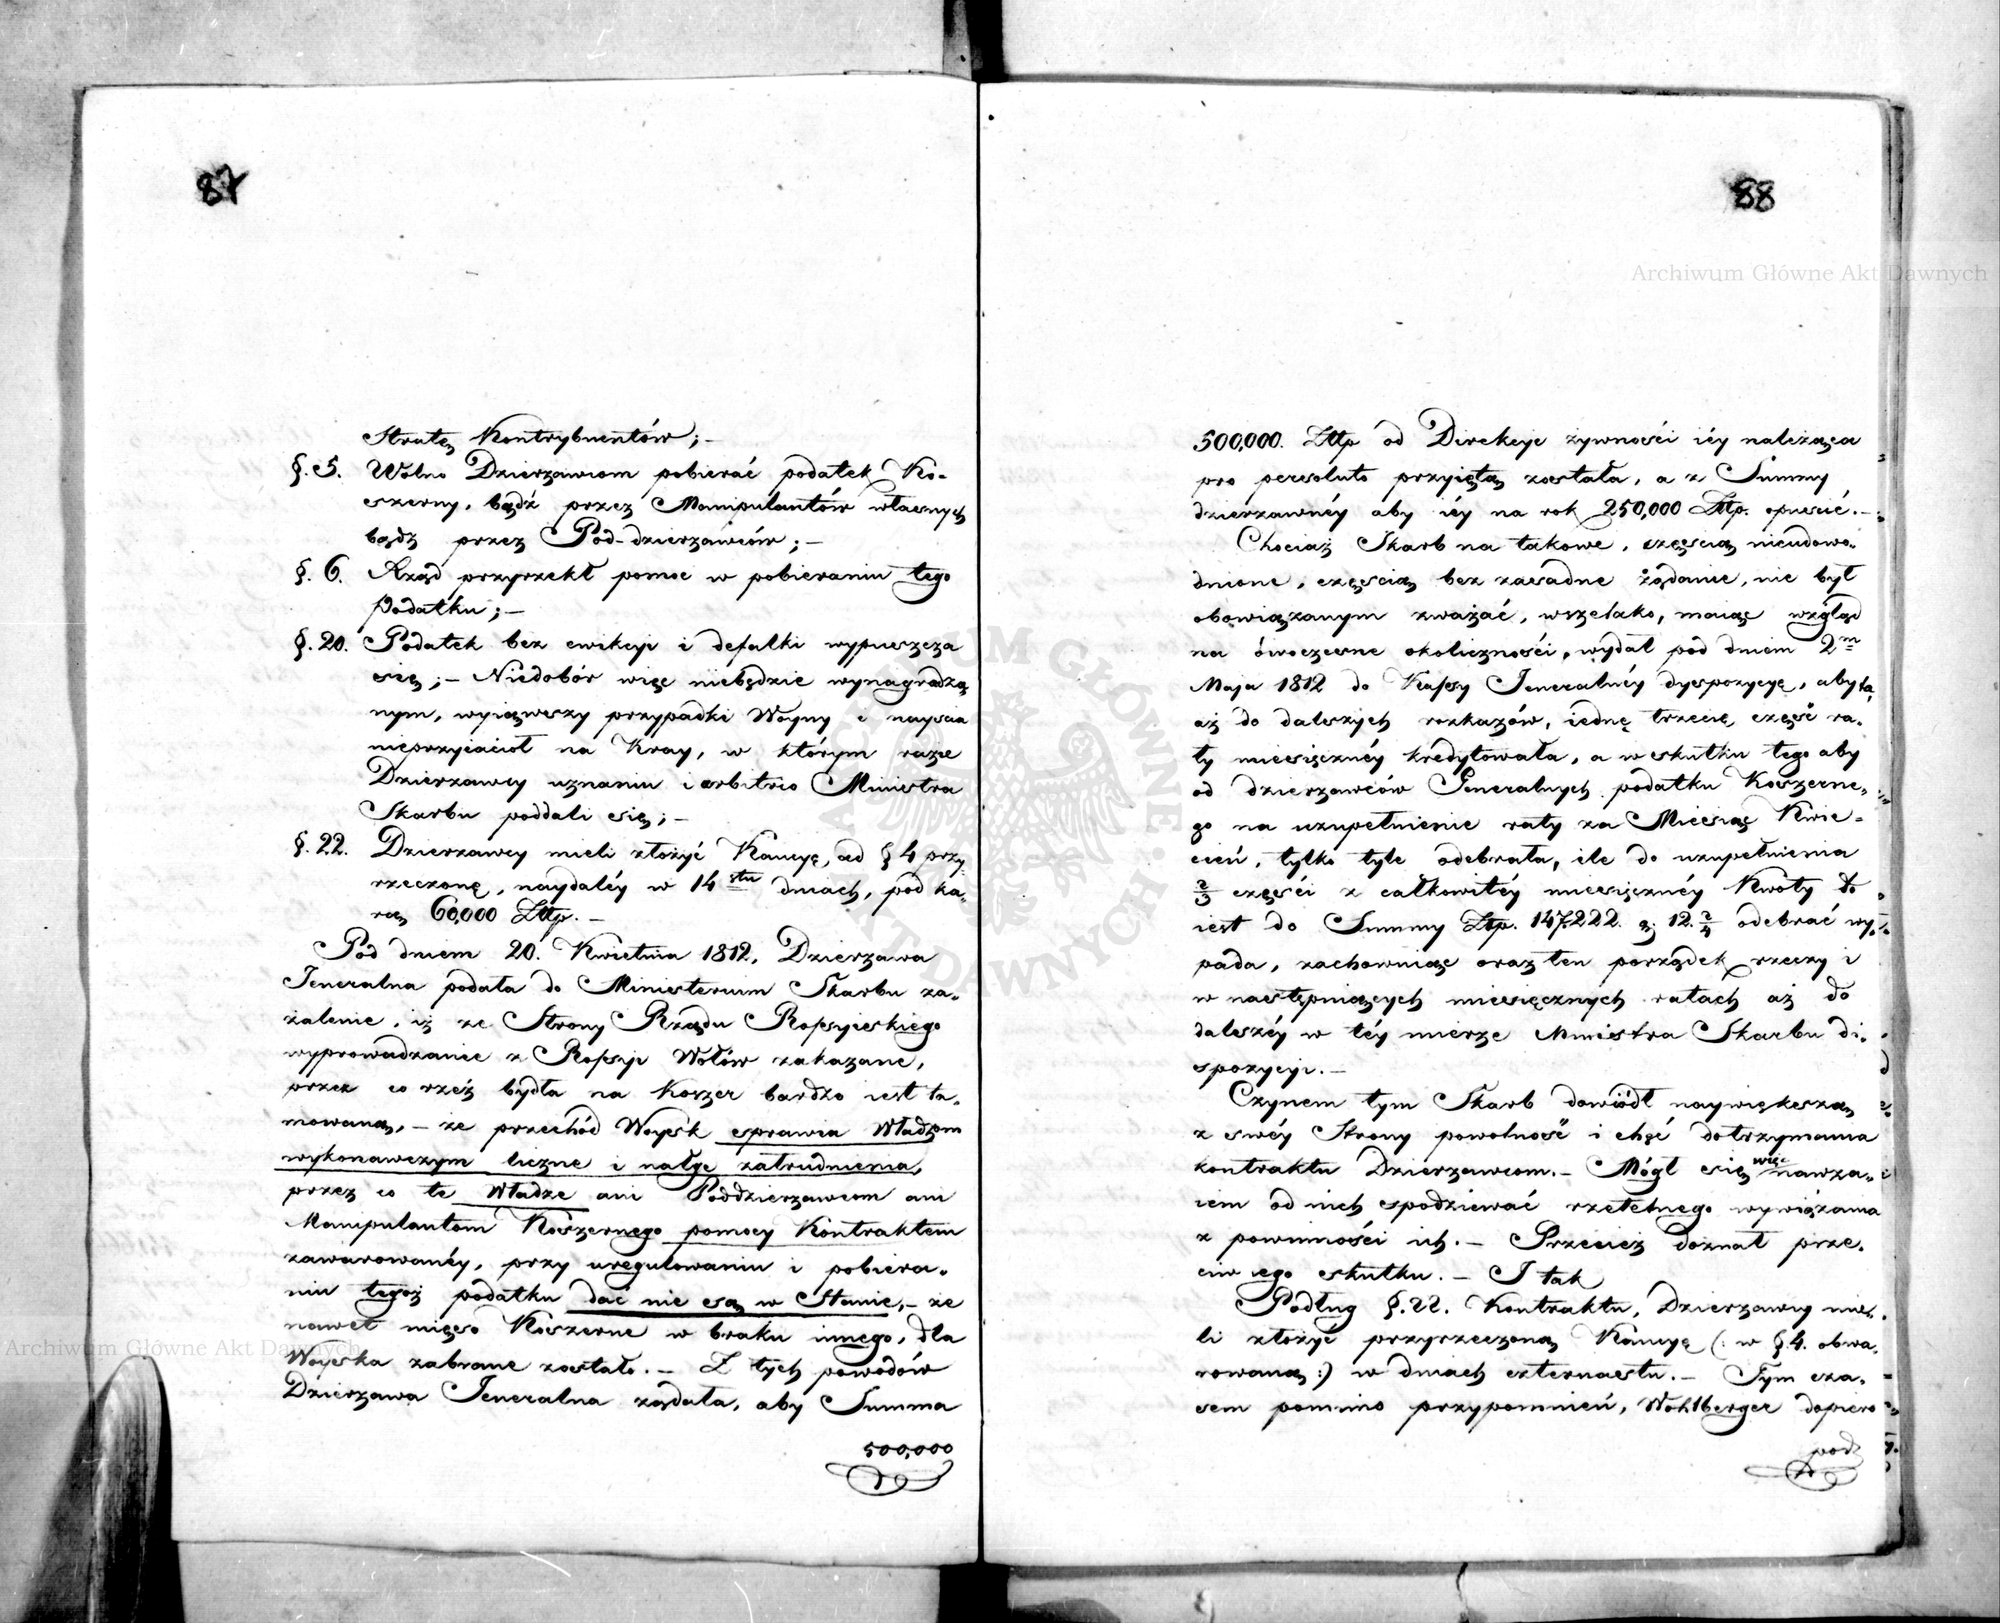 87
Stratę Kontrybuentów; –
§. 5. Wolno Dzierzawcom pobierać podatek Ko-
szerny, bądź przez Manipulantów własnych
bądz przez Pod-dzierzawców; –
§. 6. Rząd przyrzekł pomoc w pobieraniu tego
Podatku; –
§. 20. Podatek bez ewikcyi i defalki wypuszcza
się; – Niedobór więc niebędzie wynagradza
nym, wyiąwszy przypadki Woyny i nayscia
nieprzyiacioł na Kray, w którym razie
Dzierzawcy uznaniu i arbitrio Ministra
Skarbu poddali się; –
§. 22. Dzierzawcy mieli złożyć Kaucyę, ad § 4 przy
rzeczonę, naydaléy w 14stu dniach, pod ka-
rą 60,000 Złtp. –
Pod dniem 20. Kwietnia 1812, Dzierzawa
Jeneralna podała do Ministerium Skarbu za-
żalenie, iż ze Strony Rządu Rossyieskiego
wyprowadzanie z Rossyi Wołów zakazane,
przez co rzeź bydła na Koszer bardzo iest ta-
mowaną, – że przechód Woysk sprawia Władzom
wykonawczym liczne i nagłe zatrudnienia,
przez co te Władze ani Poddzierzawcom ani
Manipulantom Koszernego pomocy Kontraktem
zawarowanéy, przy uregulowaniu i pobiera-
niu tegoż podatku dać nie są w Stanie, – że
nawet mięso Koszerne w braku innego, dla
Woyska zabrane zostało. – Z tych powodów
Dzierzawa Jeneralna żądała, aby Summa
500,000
88
500,000. Złtp od Direkcyi żywności iéy należąca
pro peresoluto przyiętą została, a z Summy
dzierzawnéy aby iéy na rok 250,000 Złtp. opuscić. –
Chociaż Skarb na takowe, częscią nieudowo-
dnione, częscią bez zasadne żądanie, nie był
obowiązanym zważać, wszelako, maiąc wzgląd
na ówoczesne okoliczności, wydał pod dniem 2m
Maja 1812 do Kassy Jeneralnéy dyspozycyę, aby ta
aż do dalszych rozkazów, iednę trzecię część ra-
ty miesięcznéy kredytowała, a w skutku tego aby
od dzierzawców Generalnych podatku Koszerne-
go na uzupełnienie raty za Miesiąc Kwie-
cień, tylko tyle odebrała, ile do uzupełnienia
2/3 części z całkowitéy miesięcznéy Kwoty to
iest do Summy Złtp. 147,222. gr 12. 2/4 odebrać wy-
pada, zachowuiąc oraz ten porządek rzeczy i
w następuiących miesięcznych ratach aż do
dalszéy w téy mierze Ministra Skarbu di-
spozycyi. –
Czynem tym Skarb dowiódł naywiększą
z swéy Strony powolność i chęć dotrzymania
kontraktu Dzierzawcom. – Mógł się więc nawza-
iem od nich spodziewać rzetelnego wywiązania
z powinności ich. – Przecież doznał prze-
ciwnego skutku. – I tak
Podług §. 22. Kontraktu, Dzierzawcy mie-
li złożyć przyrzeczoną Kaucyę (: w §. 4. obwa-
rowaną :) w dniach czternastu. – Tym cza-
sem pomimo przypomnień, Wohlberger dopiero
pod
Archiwum Główne Akt Dawnych
Archiwum Główne Akt Dawnych
ARCHIWUM GŁÓWNE AKT DAWNYCH